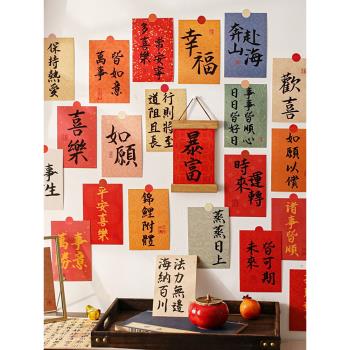 保持熱愛
皆如意
萬事
常安寧
多喜樂
幸福
赴海
奔山
歡喜
喜樂
如願
行則將至
道阻且長
暴富
事事皆順心
日日皆好日
如願以償
事生
平安喜樂
錦鯉附體
時來
運轉
諸事皆順
事意
萬勝
蒸蒸日上
皆可期
未來
法力無邊
海納百川